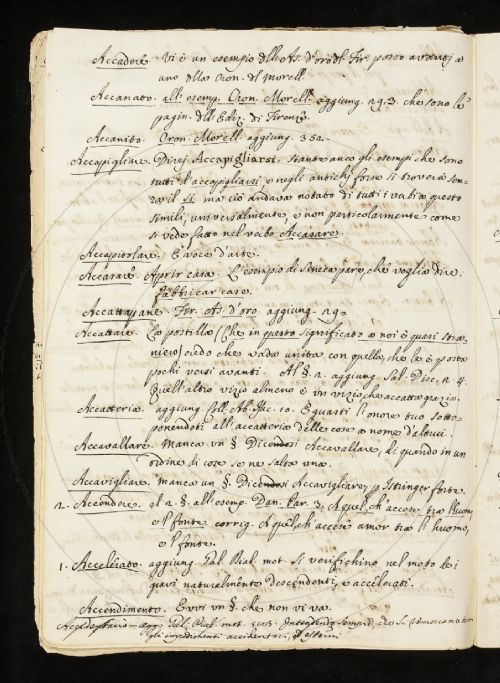 Accadere. Vi è un esempio dell'As. d'oro del Fir. posto avanti a
uno della Cron. del Morell.
Accanato. all'esemp. Cron. Morell. aggiung. 293. che sono le
pagin. dell'Ediz. di Firenze.
Accanito. Cron. Morell. aggiung. 350.
Accapigliare. Direi Accapigliarsi. stante anco gli esempi che sono
tutti d'accapigliarsi, e negli antichi forse si troverà sen-
za il si, ma ciò andava notato di tutti i verbi a questo
simili, universalmente, e non particolarmente come
si vede fatto nel verbo Accasare.
Accapitolare. È voce d'arte.
Accasare. Aprir casa. L'esempio di Seneca pare, che voglia dire.
Fabbricar case.
Accattapane. Fir. As. d'oro. aggiung. 29
Accattare. La postilla (Che in questo significato a noi è quasi stra-
niero) credo che vada unita con quella, che le è posta
pochi versi avanti. Al §. 2. aggiung. Sal. Disc. 2. 4.
Quell'altro vizio almeno è un vizio, che accatta grazia.
Accatteria. aggiung. Coll. Ab. Isac. 10. E guasti l'onore tuo sotto-
ponendoti all'accatteria delle cose a nome d'alcuci.
Accavallare. Manca un §. Dicendosi Accavallare, di quando in un
ordine di cose se ne salta una.
Accavigliare. manca un §. Dicendosi Accavigliare, p Istringer forte.
2. Accendere. al 2. §. all'esemp. Dan. Par. 3. A quel, ch'accese tra l'huom
e'l fonte corrig. A quel ch'accese amor tra l'huomo,
e'l fonte.
1. Accelerato. aggiung. Gal. Dial. mot. Si verifichino nel moto dei
gravi naturalmente descendenti, e accelerati.
Accendimento. Evvi un §. che non vi va.
Accidentario - agg. Gal. Dial. mot. Intendendo sempre che si rimovano tutti
gli impedimenti accidentari, ed esterni